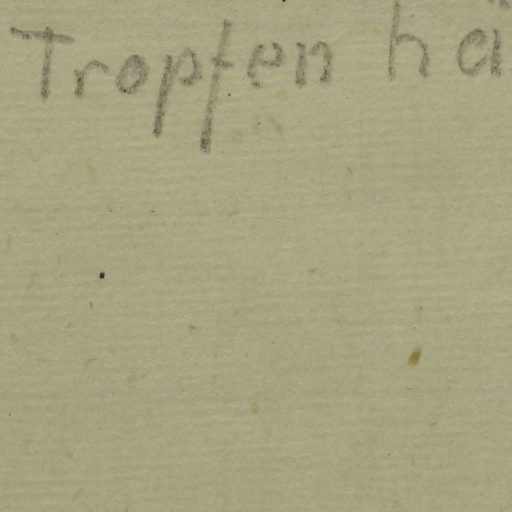 Tropfen hä